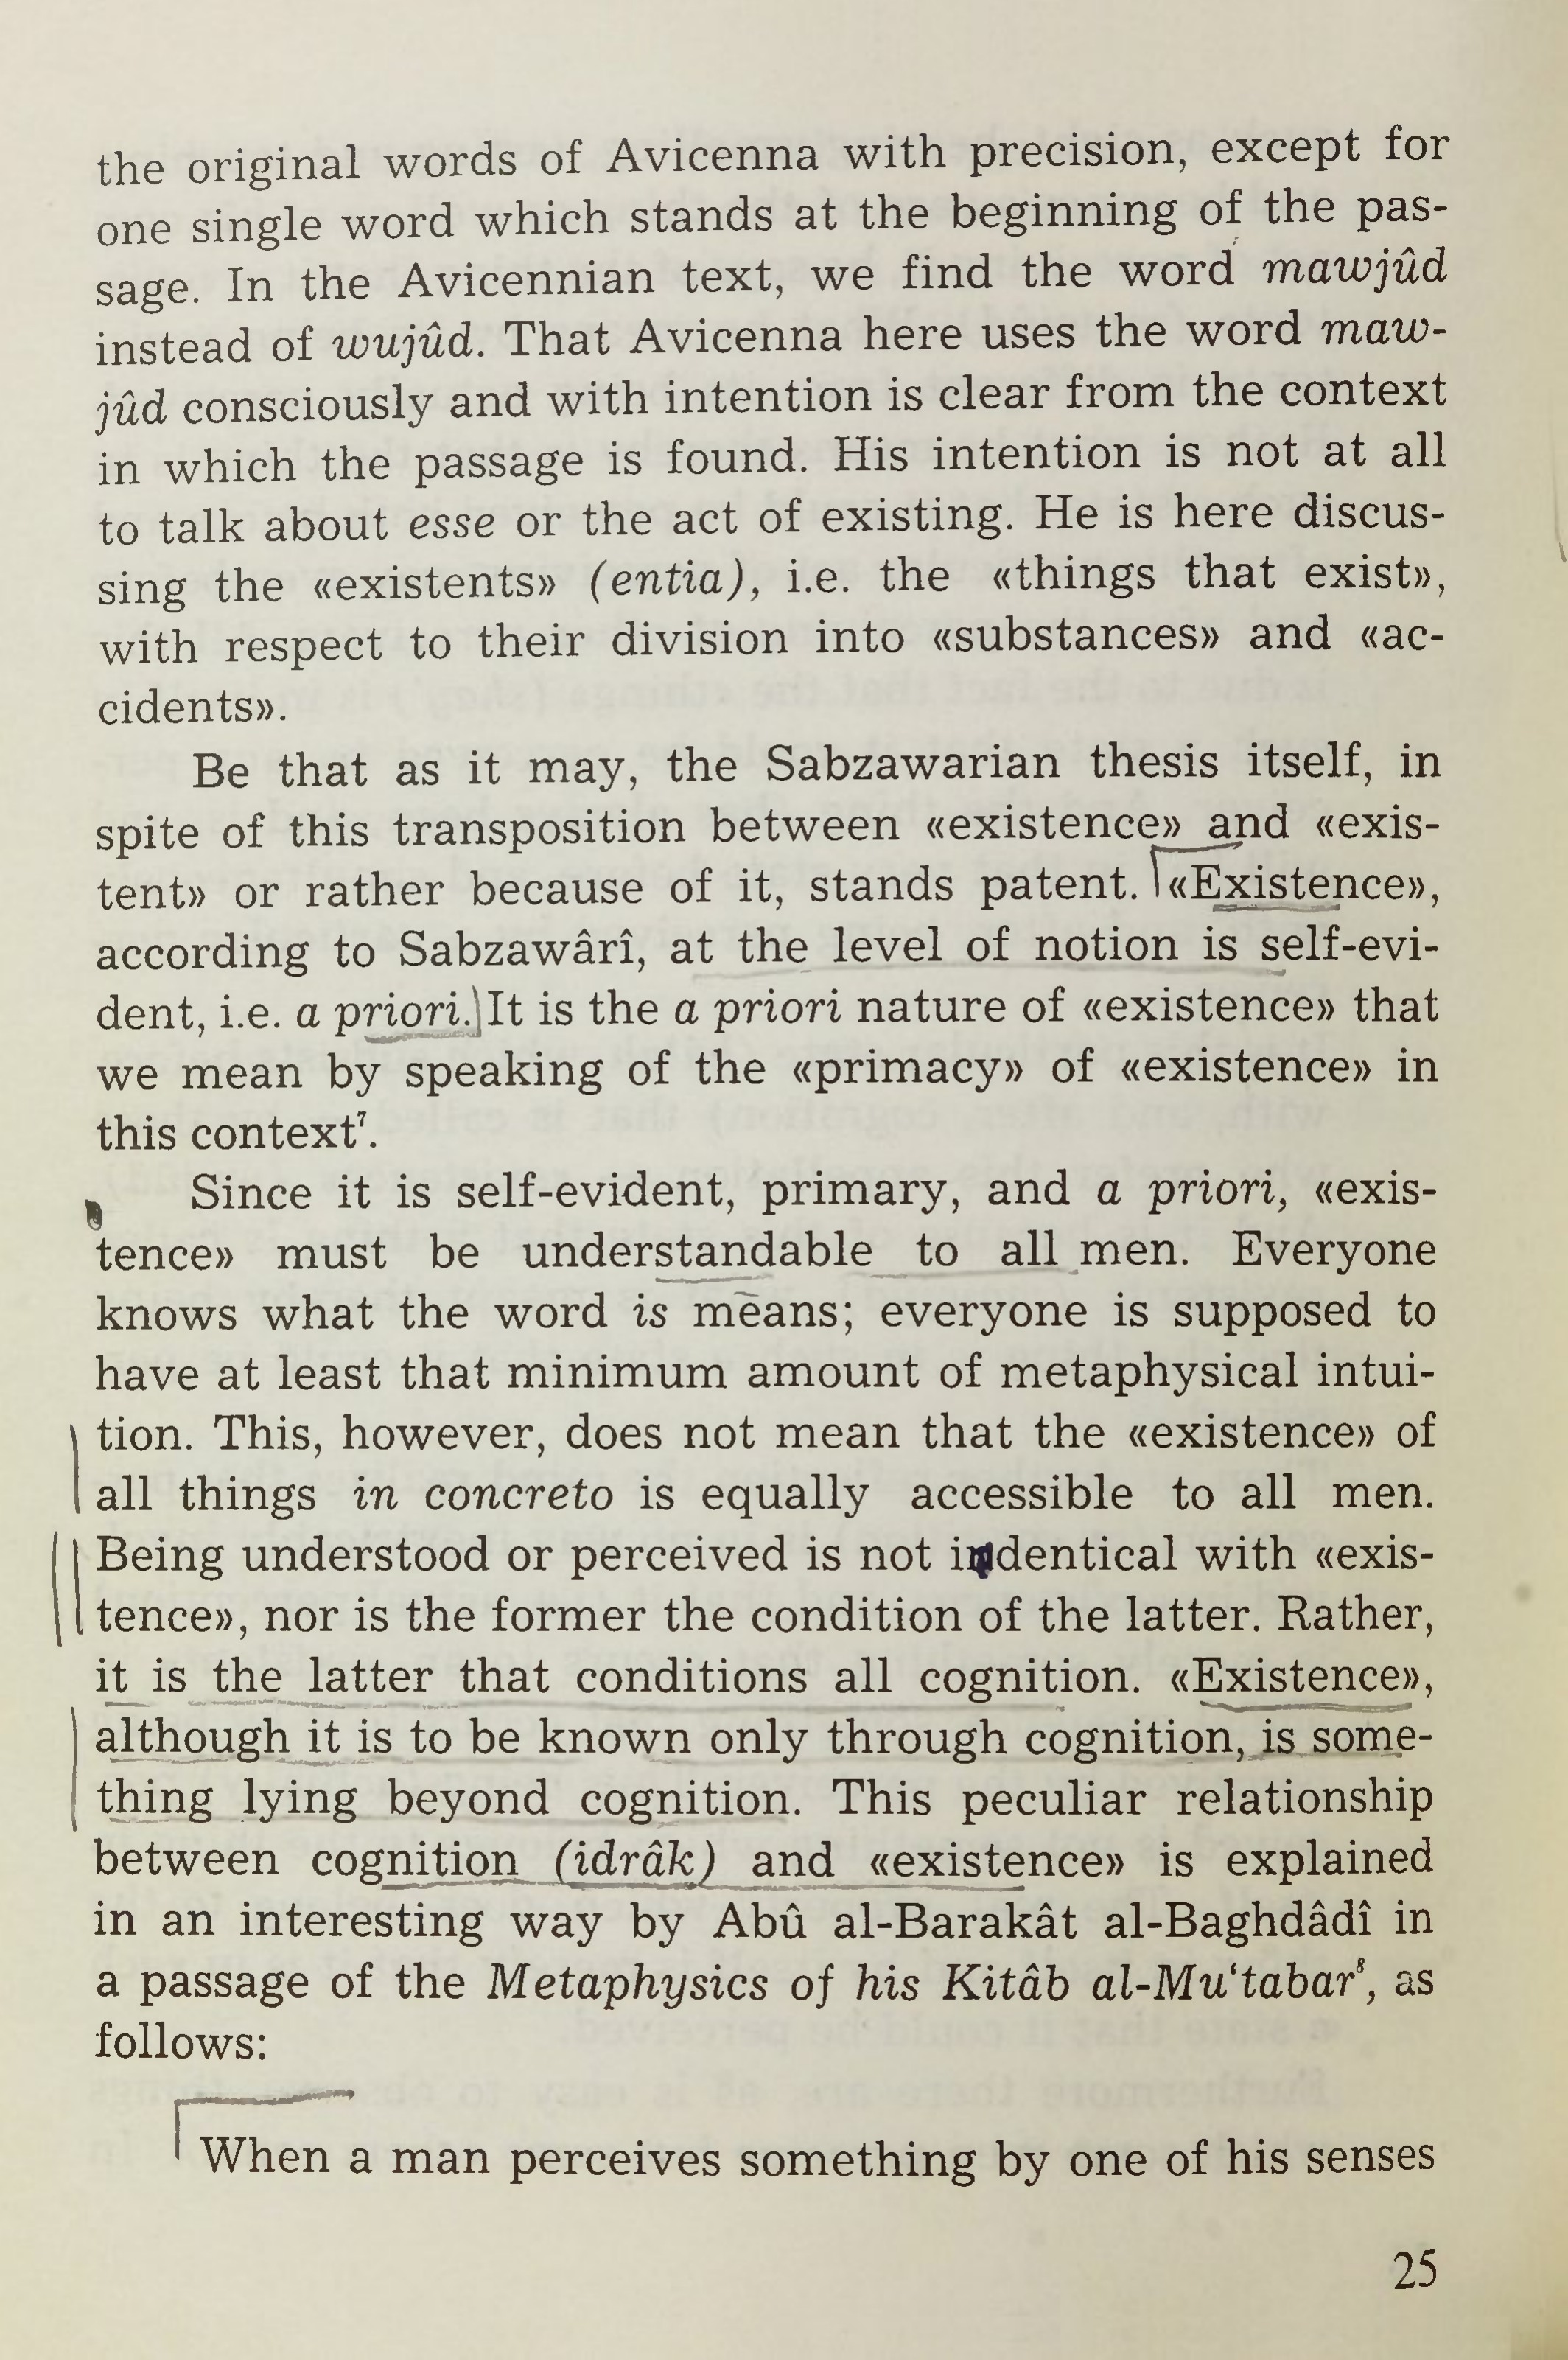 the original words of Avicenna with precision, except for
one single word which stands at the beginning of the pas-
sage. In the Avicennian text, we find the word mawjûd
instead of wujûd. That Avicenna here uses the word maw-
jûd consciously and with intention is clear from the context
in which the passage is found. His intention is not at all
to talk about esse or the act of existing. He is here discus-
sing the «existents» (entia), i.e. the «things that exist»,
with respect to their division into «substances» and «ac-
cidents».
Be that as it may, the Sabzawarian thesis itself, in
spite of this transposition between «existence» and «exis-
tent» or rather because of it, stands patent. «Existence»,
according to Sabzawârî, at the level of notion is self-evi-
dent, i.e. a priori. It is the a priori nature of «existence» that
we mean by speaking of the «primacy» of «existence» in
this context⁷.
Since it is self-evident, primary, and a priori, «exis-
tence» must be understandable to all men. Everyone
knows what the word is means; everyone is supposed to
have at least that minimum amount of metaphysical intui-
tion. This, however, does not mean that the «existence» of
all things in concreto is equally accessible to all men.
Being understood or perceived is not indentical with «exis-
tence», nor is the former the condition of the latter. Rather,
it is the latter that conditions all cognition. «Existence»,
although it is to be known only through cognition, is some-
thing lying beyond cognition. This peculiar relationship
between cognition (idrâk) and «existence» is explained
in an interesting way by Abû al-Barakât al-Baghdâdî in
a passage of the Metaphysics of his Kitâb al-Mu‘tabar⁸, as
follows:
When a man perceives something by one of his senses
25